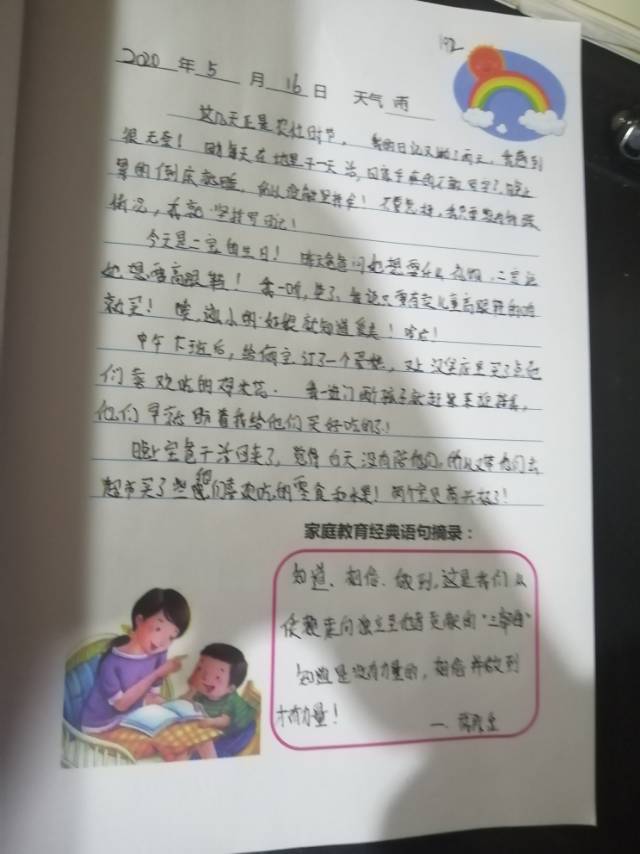 192
2020 年 5 月 16 日 天气 雨
这几天正是农忙时节，我的日记又断了两天，我感到
很无奈！ 因每天在地里干一天活，回家手疼的不敢写字了，晚上
累的倒床就睡，所以没能坚持写！不管怎样，我只要没有特殊
情况，我就坚持写日记！
今天是二宝的生日！昨天爸爸问她想要什么礼物，二宝说
她想要高跟鞋！我一听，笑了，爸爸说只要有卖儿童高跟鞋的咱
就买！ 噢，这小的好想就知道爱美！哈哈！
中午下班后，给俩宝订了一个蛋糕，又上汉堡店里买了点他
们喜欢吃的爆米花。 我一进门两孩子就赶紧来迎接我，
他们早就盼着我给他们买好吃的了！
晚上宝爸干活回来了，觉得白天没有陪他们，所以又带他们去
超市买了些他们喜欢吃的零食和水果！两个宝贝高兴极了！
家庭教育经典语句摘录：
知道、相信、做到，这是我们从
依赖走向独立至他者贡献的“三部曲”
知道是没有力量的，相信并做到
才有力量！